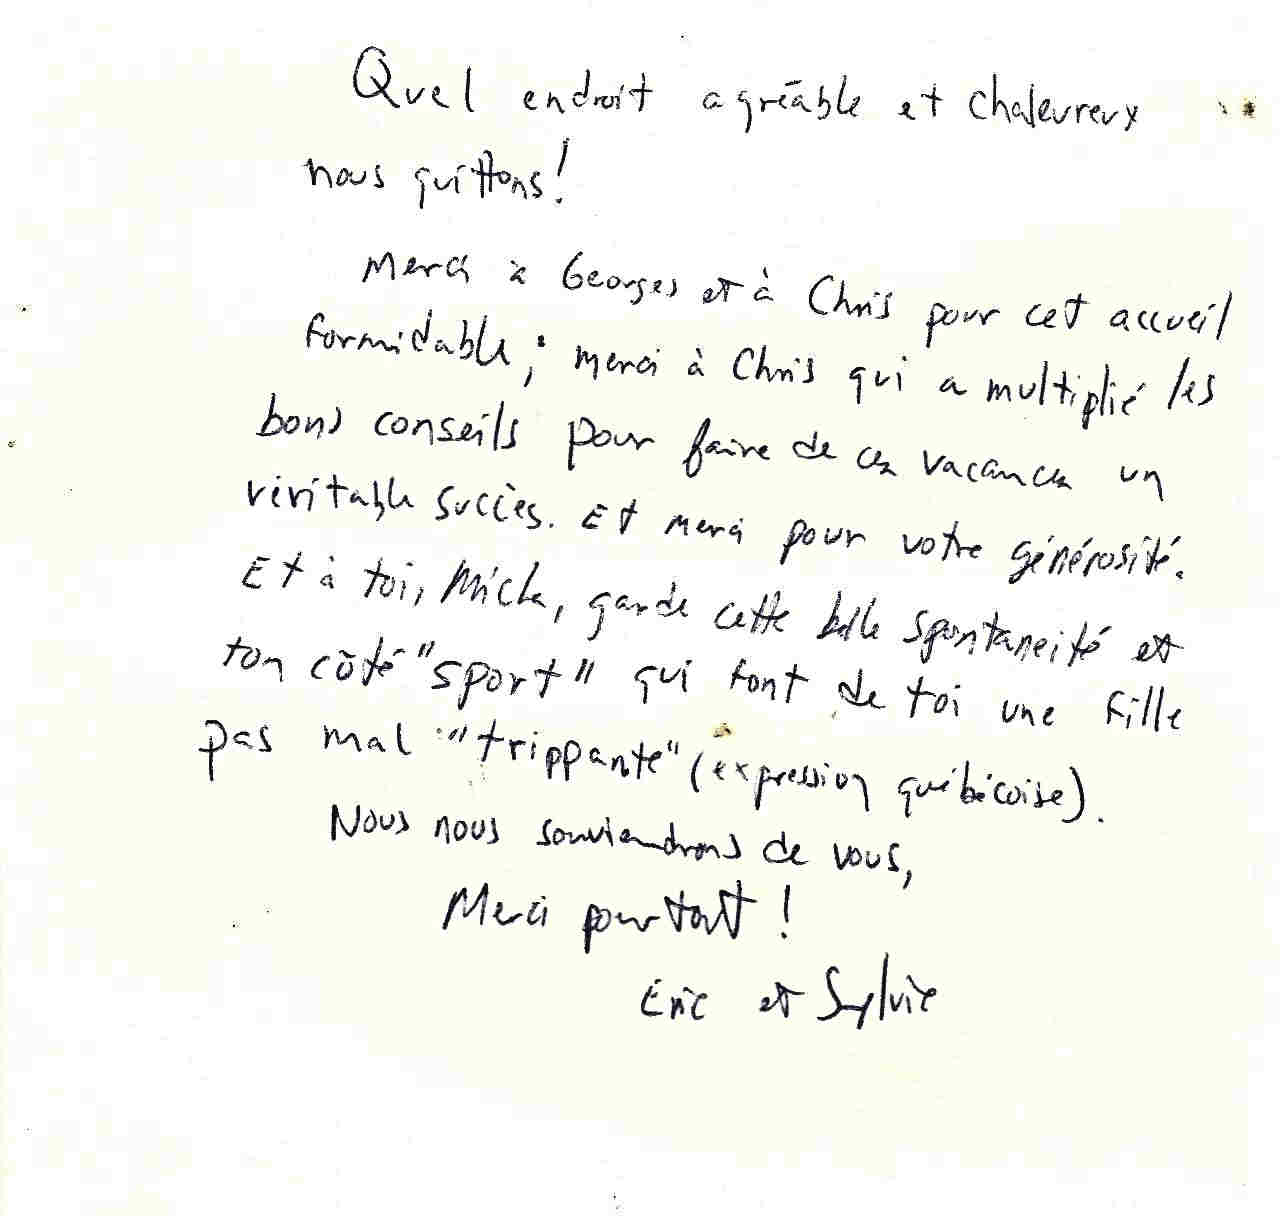 Quel endroit agréable et chaleureux
nous quittons!
Merci à Georges et à Chris pour cet accueil
formidable; merci à Chris qui a multiplié les
bons conseils pour faire de ces vacances un
véritable succès. Et merci pour votre générosité.
Et à toi, garde cette belle spontanéité et
ton côté "sport" qui font de toi une fille
pas mal "trippante" (expression québécoise).
Nous nous souviendrons de vous,
Merci pour tout!
Éric et Sylvie